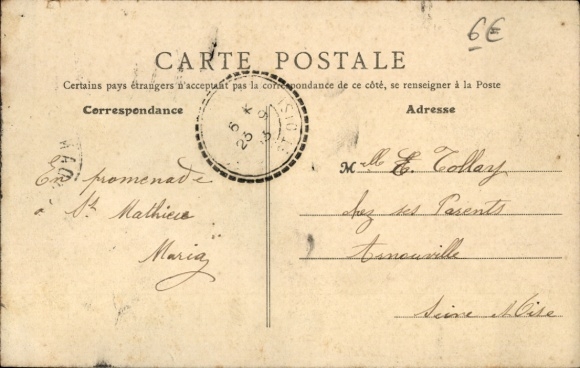 6€
CARTE POSTALE
Certains pays étrangers n'acceptant pas la correspondance de ce côté, se renseigner à la Poste
Correspondance
Adresse
En promenade
à St Mathieu
Maria
Mlle E Tollay
chez ses Parents
Arnouville
Seine et Oise